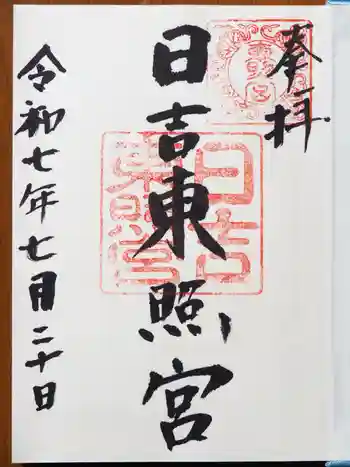 奉拝
日吉東照宮
令和七年七月二十日
日吉東照宮